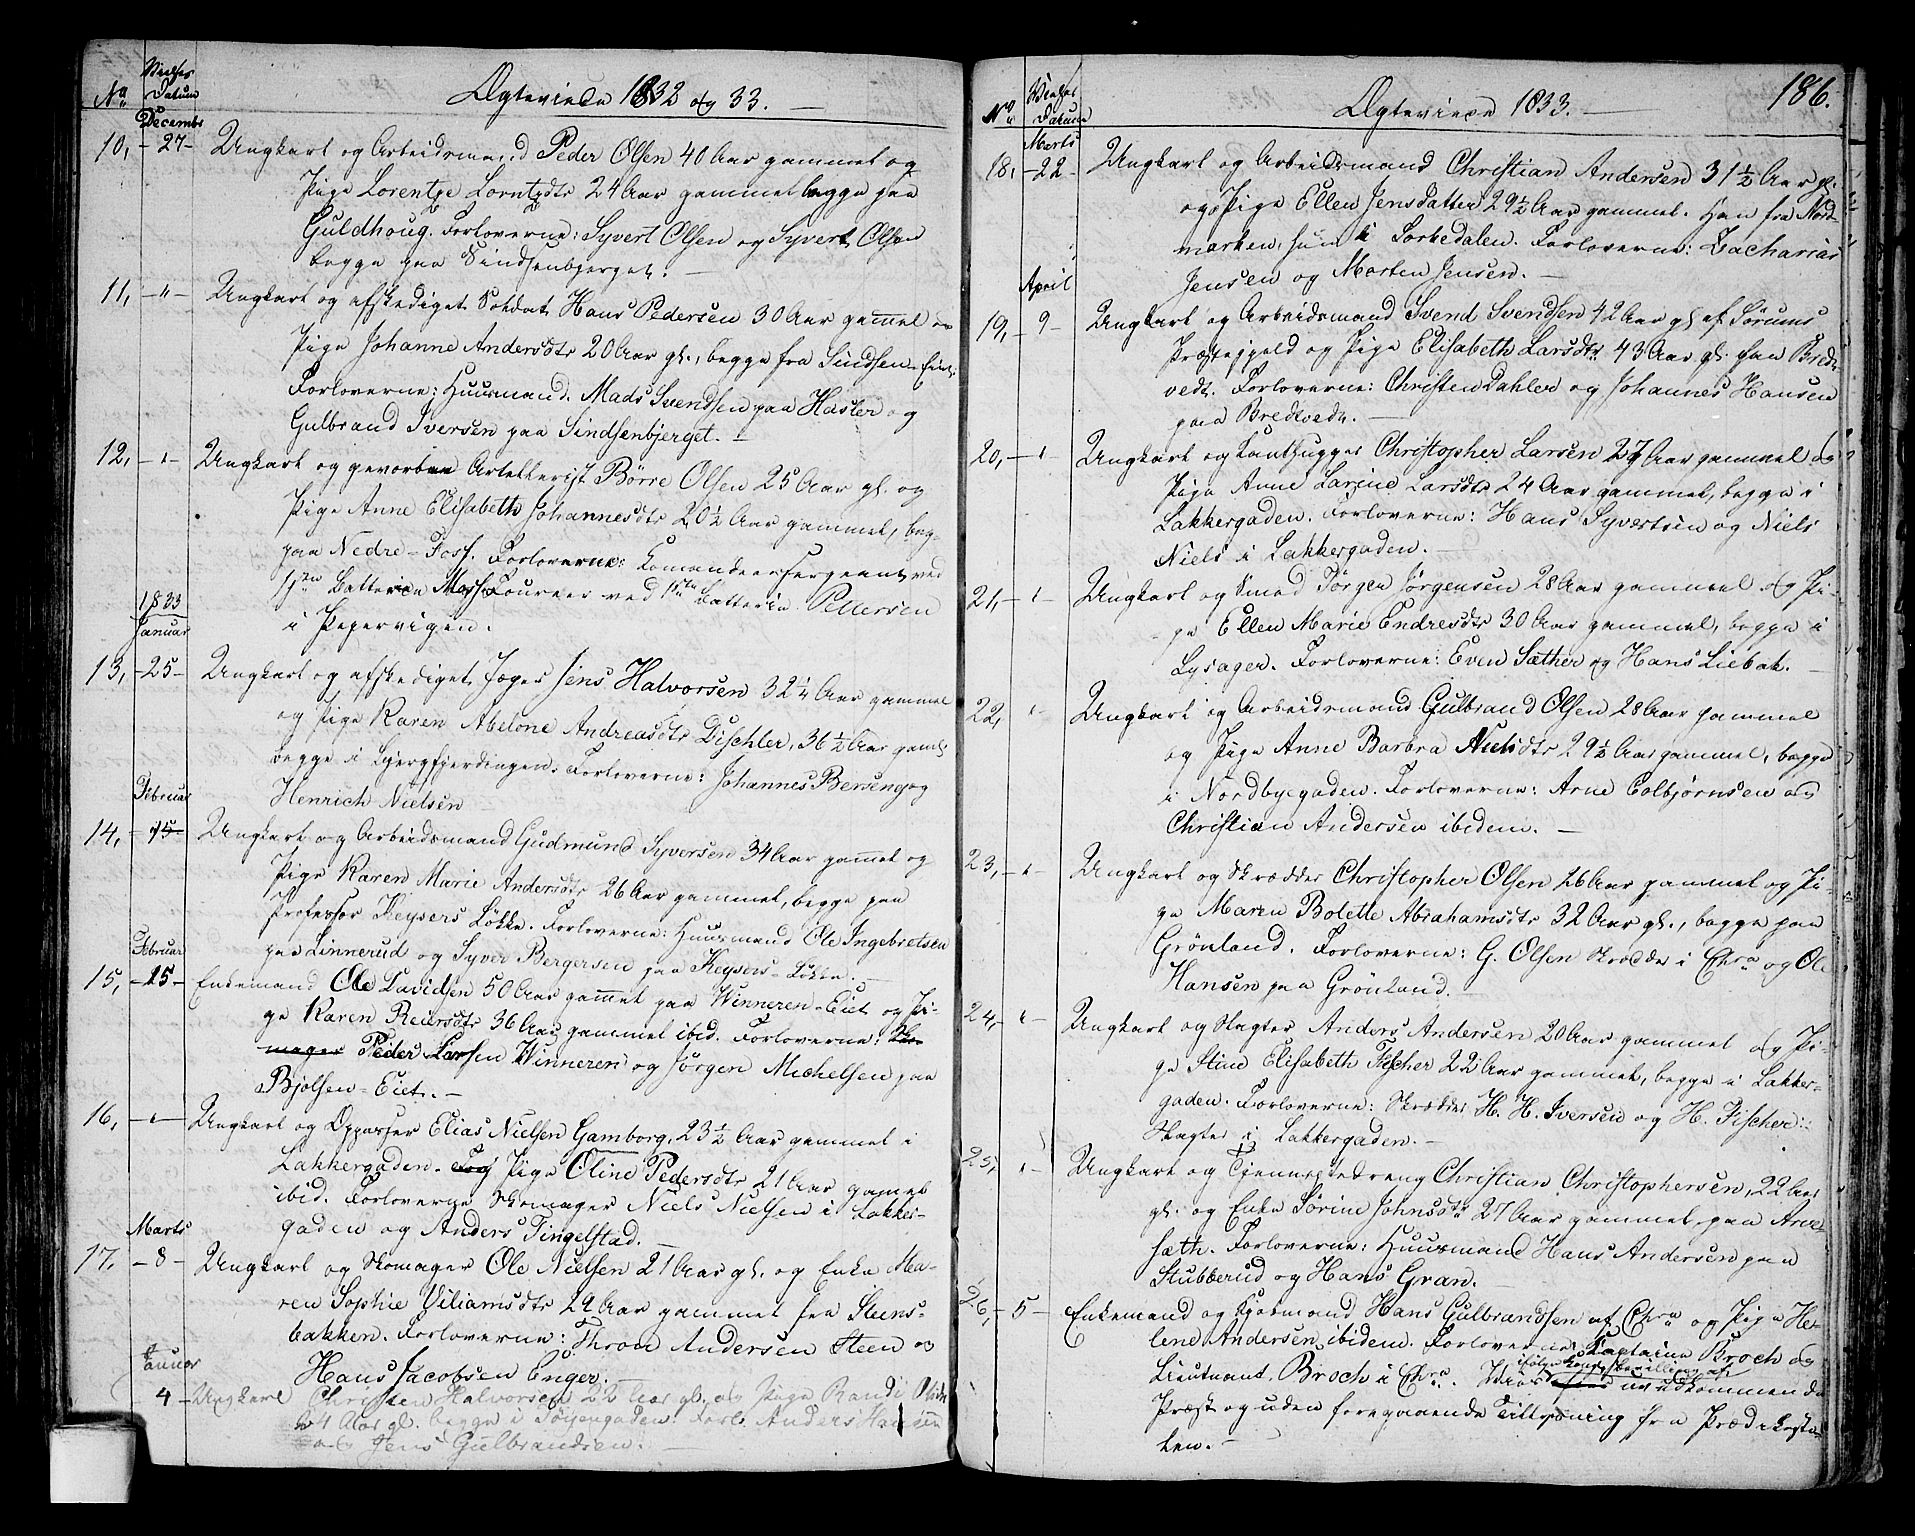 Nº Vielses Datum
Ægteviede 1832 og 33.
Decembr
10, 27 Ungkarl og Arbeidsmand Peder Olsen 40 Aar gammel og
Pige Lorentze Lorntzdtr 24 Aar gammel begge paa
Guldhoug. Forloverne: Syvert Olsen og Syvert Olsen
begge paa Sindsenbjerget.
11, " Ungkarl og afskediget Soldat Hans Pedersen 30 Aar gammel og
Pige Johanne Andersdtr 20 Aar gl., begge fra Sindsen-Eiet.
Forloverne: Huusmand Mads Svendsen paa Hasler og
Gulbrand Iversen paa Sindsenbjerget.
12, " Ungkarl og gevorben Artellerist Børre Olsen 25 Aar gl. og
Pige Anne Elisabeth Johannesdtr 20½ Aar gammel, beg-
paa Nedre-Foss. Forloverne: Komandeersergeant ved
Batterie Moss Foureer ved Batterie Pettersen
i Pepervigen.
1833
Januar
13, 25 Ungkarl og afskediget Jæger Jens Halvorsen 32¼ Aar gammel
og Pige Karen Abelone Andreasdtr Dischler, 36½ Aar gaml.
begge i Bjergfjerdingen. Forloverne: Johannes Berseng og
Henrich Nielsen
Februar
14, 15 Ungkarl og Arbeidsmand Gudmund Syversen 34 Aar gammel og
Pige Karen Marie Andersdtr 26 Aar gammel, begge paa
Professor Keysers Løkke. Forloverne: Huusmand Ole Ingebretsen
paa Linnerud og Syver Bergersen paa Keysers-Løkke.
Februar
15, 15 Enkemand Ole Davidsen 50 Aar gammel paa Winneren-Eiet og Pi-
ge Karen Reiersdtr 36 Aar gammel ibid. Forloverne: Sko-
mager Peder Larsen Winneren og Jørgen Michelsen paa
Bjølsen-Eiet.
16, " Ungkarl og Oppasser Elias Nielsen Gamborg, 23½ Aar gammel i
Lakkergaden. Pige Oline Pedersdtr 21 Aar gammel
ibid. Forloverne Skomager Niels Nielsen i Lakker-
gaden og Anders Tingelstad.
Marts
17, 8 Ungkarl og Skomager Ole Nielsen 21 Aar gl. og Enke Ma-
ren Sophie Viliamsdtr 29 Aar gammel fra Steens-
bakken. Forloverne: Thron Andersen Steen og
Hans Jacobsen Enger.
Januar
4 Ungkarl Christen Halvorsen 22 Aar gl. og Pige Randi
24 Aar gl. begge i Tøyengaden. Forl. Anders Hansen
og Jens Gulbrandsen.
186.
Nº Vielses Datum
Ægteviede 1833.
Marts
18, 22 Ungkarl og Arbeidsmand Christian Andersen 31½ Aar gl.
og Pige Ellen Jensdatter 29½ Aar gammel. Han fra Nord-
marken, hun i Sørkedalen. Forloverne: Zacharias
Jensen og Morten Jensen.
April
19, 9 Ungkarl og Arbeidsmand Svend Svendsen 42 Aar gl. af Sørums
Præstegjeld og Pige Elisabeth Larsdtr 43 Aar gl. paa Bred-
vedt. Forloverne: Christen Dahler og Johannes Hansen
paa Bredvedt.
20, " Ungkarl og Kanthugger Christopher Larsen 27 Aar gammel og
Pige Anne Larine Larsdtr 24 Aar gammel, begge i
Lakkergaden. Forloverne: Hans Syvertsen og Niels
Niels i Lakkergaden.
21, " Ungkarl og Smed Jørgen Jørgensen 28 Aar gammel og Pi-
ge Ellen Marie Endresdtr 30 Aar gammel, begge i
Lysager. Forloverne: Even Sæther og Hans Liebak.
22, " Ungkarl og Arbeidsmand Gulbrand Olsen 28 Aar gammel
og Pige Anne Barbra Nielsdtr 29½ Aar gammel, begge
i Nordbyegaden. Forloverne: Arne Colbjørnsen og
Christian Andersen ibidem.
23, " Ungkarl og Skrædder Christopher Olsen 26 Aar gammel og Pi-
ge Maren Bolette Abrahamsdtr 32 Aar gl., begge paa
Grønland. Forloverne: G. Olsen Skrædder i Chra og Ole
Hansen paa Grønland.
24, " Ungkarl og Slagter Anders Andersen 20 Aar gammel og Pi-
ge Stine Elisabeth Fischer 22 Aar gammel, begge i Lakker-
gaden. Forloverne: Skrædder H. H. Iversen og H. Fischer
Slagter i Lakkergaden.
25, " Ungkarl og Tjenestedreng Christian Christophersen, 22 Aar
gl. og Enke Sørine Johnsdtr 27 Aar gammel, paa Arve-
sæth. Forloverne: Huusmand Hans Andersen paa
Stubberud og Hans Gran.
26, 5 Enkemand og Kjøbmand Hans Gulbrandsen af Chra og Pige He-
lene Andersen ibidem. Forloverne: Captaine Broch og
Lieutnant Broch i Chra. Viede ifølge Kongl. Bevilling af uvedkommende
Præst og uden foregaaende Tillysning fra Prædikesto-
len.